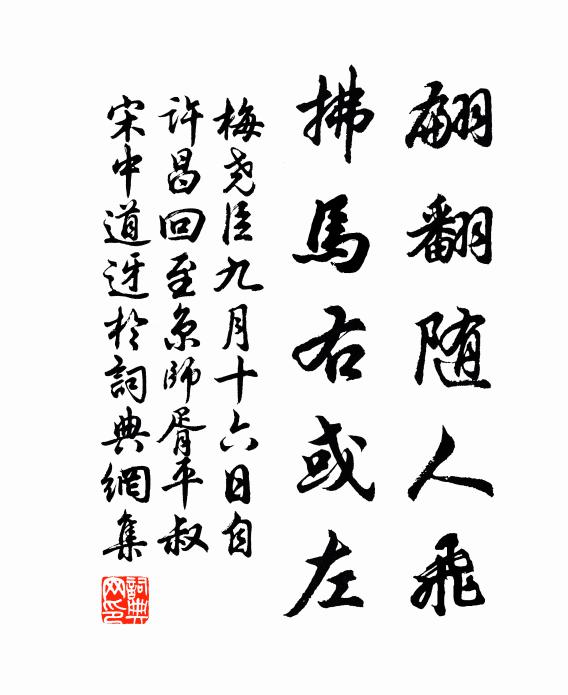 翩翻随人飛
拂馬右或左
梅尧臣九月十六日自
許昌回至京師胥平叔
宋中道迓於詞典網集
詞典网印